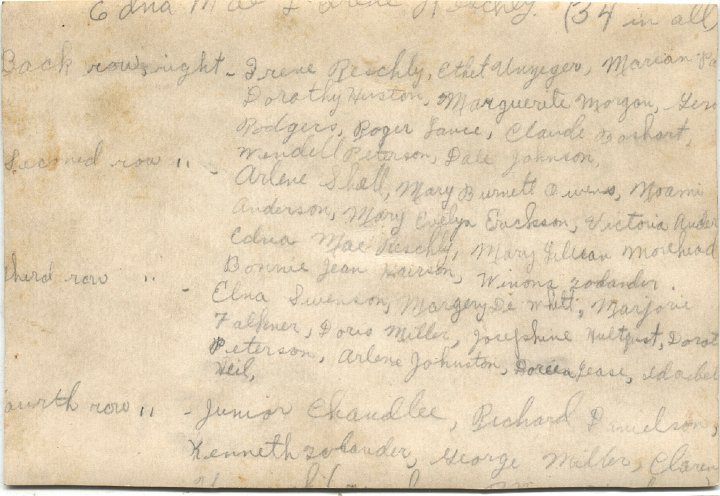 Edna Mae & Irene Reschly. (34 in all)
Back row, right - Irene Reschly, Ethel Unzeger, Marian
Dorothy Huston, Marguerite Morgan,
Rodgers, Roger Lauce, Claude
Second row " - Wendell Peterson, Dale Johnson,
Arlene Shall, Mary Burnett Owens, Naomi
Anderson, Mary Evelyn Erickson, Victoria Ander
Edna Mae Reschly, Mary Lillian Morehead
Bonnie Jean Kairson, Winona Zolander.
third row " - Elna Swenson, Margery De Witt, Marjorie
Falkner, Doris Miller, Josephine Hultquist, Dorot
Peterson, Arlene Johnston, Doreen Lease,
Weil,
fourth row " - Junior Chandlee, Richard Danielson,
Kenneth Zolander, George Miller, Claren